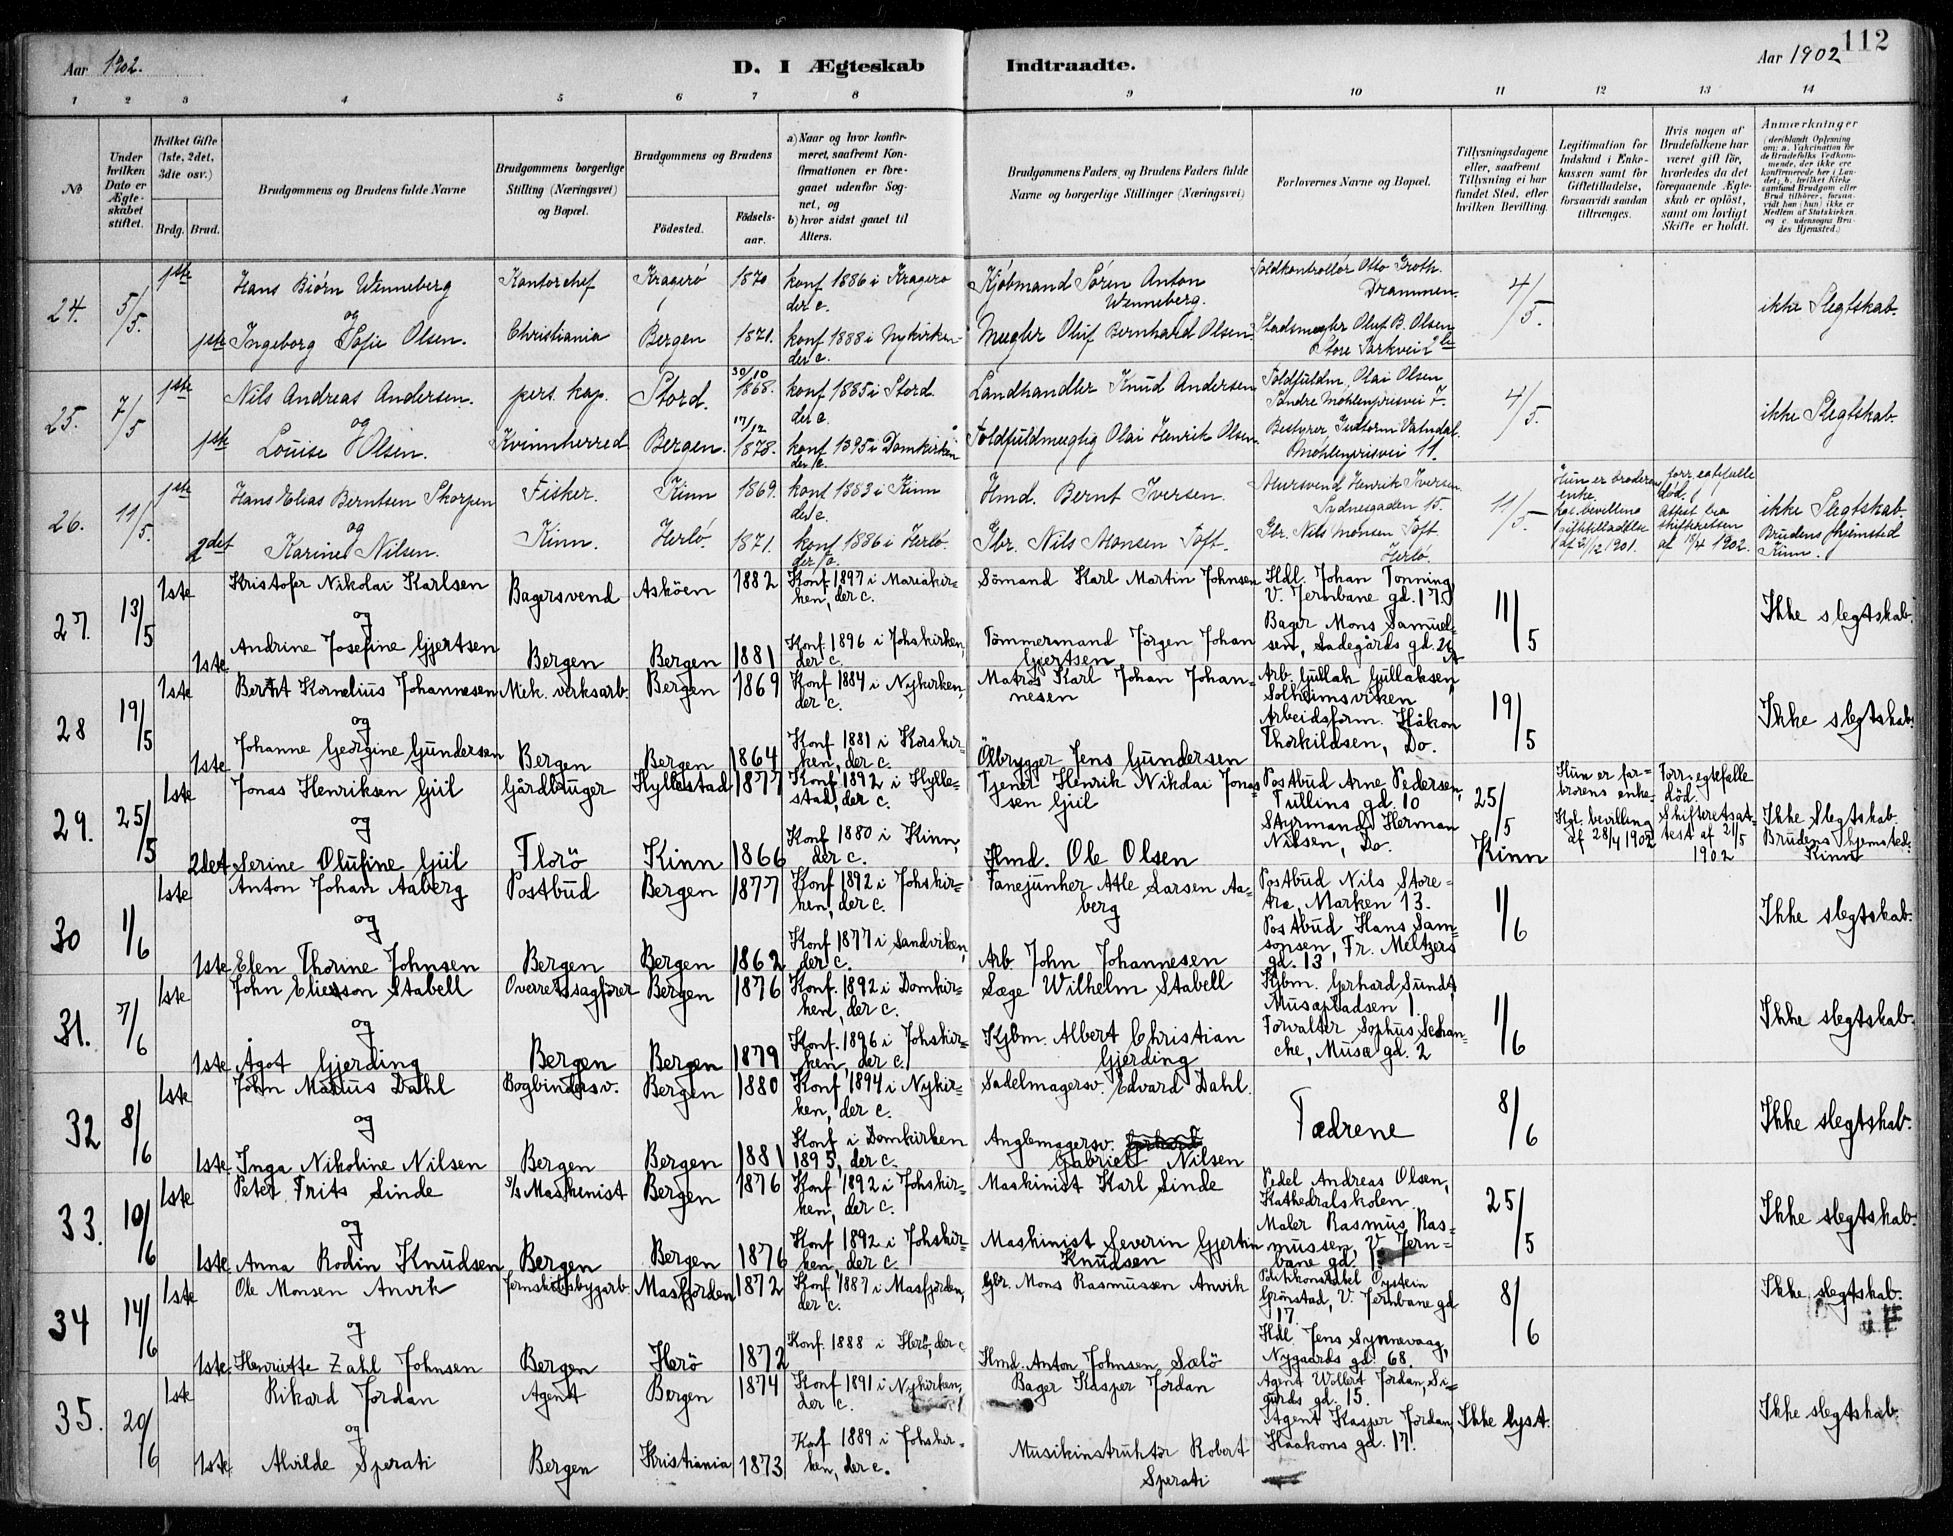 112
Aar 1902.
D. I Ægteskab Indtraadte.
Aar 1902
1 2 3 4 5 6 7 8 9 10 11 12 13 14
No
Under hvilken Dato er Ægteskabet stiftet.
Hvilket Gifte (1ste, 2det, 3die osv.)
Brdg. Brud.
Brudgommens og Brudens fulde Navne
Brudgommens borgerlige Stilling (Næringsvei) og Bopæl.
Brudgommens og Brudens
Födested.
Födsels-aar.
a) Naar og hvor konfirmeret, saafremt Konfirmationen er foregaaet udenfor Sognet, og
b) hvor sidst gaaet til Alters.
Brudgommens Faders og Brudens Faders fulde Navne og borgerlige Stillinger (Næringsvei)
Forlovernes Navne og Bopæl.
Tillysningsdagene eller, saafremt Tillysning ei har fundet Sted, efter hvilken Bevilling.
Legitimation for Indskud i Enkekassen samt for Giftetilladelse, forsaavidt saadan tiltrænges.
Hvis nogen af Brudefolkene har været gift för, hvorledes da det foregaaende Ægteskab er oplöst, samt om lovligt Skifte er holdt.
Anmærkninger (deriblandt Oplysning om: a. Vakcination for de Brudefolks Vedkommende, der ikke ere konfirmerede her i Landet; b. hvilket Kirkesamfund Brudgom eller Brud tilhörer, forsaavidt han (hun) ikke er Medlem af Statskirken, og c. udensogns Brudes Hjemsted.)
24. 5/5. 1ste Hans Biørn Wenneberg Kontorchef Kragerö 1870 konf 1886 i Kragerø der c. Kjøbmand Søren Anton Wenneberg. Toldkontrollør Otto Groth. Drammen. 4/5. ikke Slegtskab.
og
1ste Ingeborg Sofie Olsen. Christiania Bergen 1871. konf 1888 i Nykirken der c. Mægler Oluf Bernhard Olsen. Stadsmægler Oluf B. Olsen Store Parkvei 2
25. 7/5 1ste Nils Andreas Andersen. pers. kap. Stord. 30/10 1868. konf 1885 i Stord. der c. Landhandler Knud Andersen Toldfuldm. Olai Olsen Søndre Møhlenprisvei 7. 4/5. ikke Slegtskab.
og
1ste Louise Olsen. Kvinnherred Bergen. 17/12 1878. konf 1895 i Domkirken der c. Toldfuldmægtig Olai Henrik Olsen. Bestyrer Guttorm Vatndal. Møhlenprisvei 11.
26. 11/5. 1ste Hans Elias Berntsen Skorpen Fisker. Kinn 1869. konf 1883 i Kinn der c. Hmd. Bernt Iversen. Henrik Iversen. Sydnesgaden 15. 11/5. Hun er broderens enke. bevilling giftetilladelse 1901. forr. egtefelle død. Attest fra skifteretten af 18/4 1902. ikke Slegtskab. Brudens Hjemsted Kinn.
og
2det Karine Nilsen. Kinn. Herlö. 1871. konf 1886 i Herlö. der c. Gbr. Nils Monsen Toft. Gbr. Nils Monsen Toft Herlö.
27. 13/5 1ste Kristofer Nikolai Karlsen Bagersvend Asköen 1882 Konf. 1897 i Mariakirken, der c. Sömand Karl Martin Johnsen Hdl. Johan Tonning V. Jernbane gd. 17 11/5 Ikke slegtskab.
og
1ste Andrine Josefine Gjertsen Bergen Bergen 1881 Konf. 1896 i Johskirken, der c. Tömmermand Jörgen Johan Gjertsen Bager Mons Samuelsen, Ladegårds gd.
28 19/5 1ste Bernt Kornelius Johannesen Mek. verksarb. Bergen 1869 Konf 1884 i Nykirken, der c. Matros Karl Johan Johannesen Arb. Gullak Gullaksen, Solheimsviken 19/5 Ikke slegtskab.
og
1ste Johanne Georgine Gundersen Bergen Bergen 1864 Konf 1881 i Korskirken, der c. Ölbrygger Jens Gundersen Arbeidsform. Håkon Thorkildsen, Do.
29. 25/5 1ste Jonas Henriksen Giil Gårdbruger Hyllestad 1877 Konf 1892 i Hyllestad, der c. Tjener Henrik Nikolai Jonassen Giil Postbud Arne Pedersen, Tullins gd. 10 25/5 Kinn Hun er farbrorens enke. Kgl. bevilling af 28/4 1902 Forr. egtefelle död. Skifteretsattest af 21/5 1902 Ikke Slegtskab. Brudens hjemsted: Kinn
og
2det Serine Olufine Giil Florö Kinn 1866 Konf 1880 i Kinn, der c. Hmd. Ole Olsen Styrmand Herman Nilsen, Do.
30 1/6 1ste Anton Johan Aaberg Postbud Bergen 1877 Konf 1892 i Johskirken, der c. Fanejunker Atle Larsen Aaberg Postbud Nils Storetra, Marken 13. 1/6 Ikke slegtskab.
og
1ste Elen Thorine Johnsen Bergen Bergen 1862 Konf 1877 i Sandviken, der c. Arb. John Johannesen Postbud Hans Samsonsen, Fr. Meltzers gd. 13
31. 7/6 1ste John Eliesson Stabell Overretssagförer Bergen 1876 Konf. 1892 i Domkirken, der c. Læge Wilhelm Stabell Kjbm. Gerhard Sundt Musæpladsen 1. 1/6 Ikke slegtskab.
og
1ste Ågot Gjerding Bergen Bergen 1879 Konf. 1896 i Johskirken, der c. Kjbm. Albert Christian Gjerding Forvalter Sophus Schanche, Musæ gd. 2
32 8/6 1ste John Marius Dahl Bogbindersv. Bergen 1880 Konf 1894 i Nykirken, der c. Sadelmagersv. Edvard Dahl. Fædrene 8/6 Ikke slegtskab.
og
1ste Inga Nikoline Nilsen Bergen Bergen 1881 Konf i Domkirken 1895, der c. Anglemagersv. Gabriel Nilsen
33. 10/6 1ste Peter Frits Linde s/s Maskinist Bergen 1876 Konf 1892 i Johskirken, der c. Maskinist Karl Linde Pedel Andreas Olsen, Kathedralskolen 25/5 Ikke slegtskab.
og
1ste Anna Rodin Knudsen Bergen Bergen 1876 Konf 1892 i Johskirken, der c. Maskinist Severin Gjertin Knudsen Maler Rasmus Rasmussen, V. Jernbane gd.
34 14/6 1ste Ole Monsen Anvik Jernskibsbygarb. Masfjorden 1872 Konf 1887 i Masfjorden, der c. Gbr. Mons Rasmussen Anvik Politikonstabel Oystein Grönstad, V. Jernbane gd 17. 8/6 Ikke slegtskab.
og
1ste Henriette Zahl Johnsen Bergen Herö 1872 Konf. 1888 i Herö, der c Hmd. Anton Johnsen Sælö Hdl Jens Synnevaag, Nygaards gd. 68.
35. 20/6 1ste Rikard Jordan Agent Bergen 1874 Konf 1891 i Nykirken, der c. Bager Kasper Jordan Agent Wollert Jordan, Sigurds gd. 15. Ikke lyst. Ikke slegtskab.
og
1ste Alvilde Sperati Bergen Kristiania 1873 Konf 1889 i Johskirken, der c. Musikinstruktör Robert Sperati Agent Kasper Jordan, Haakons gd. 17.